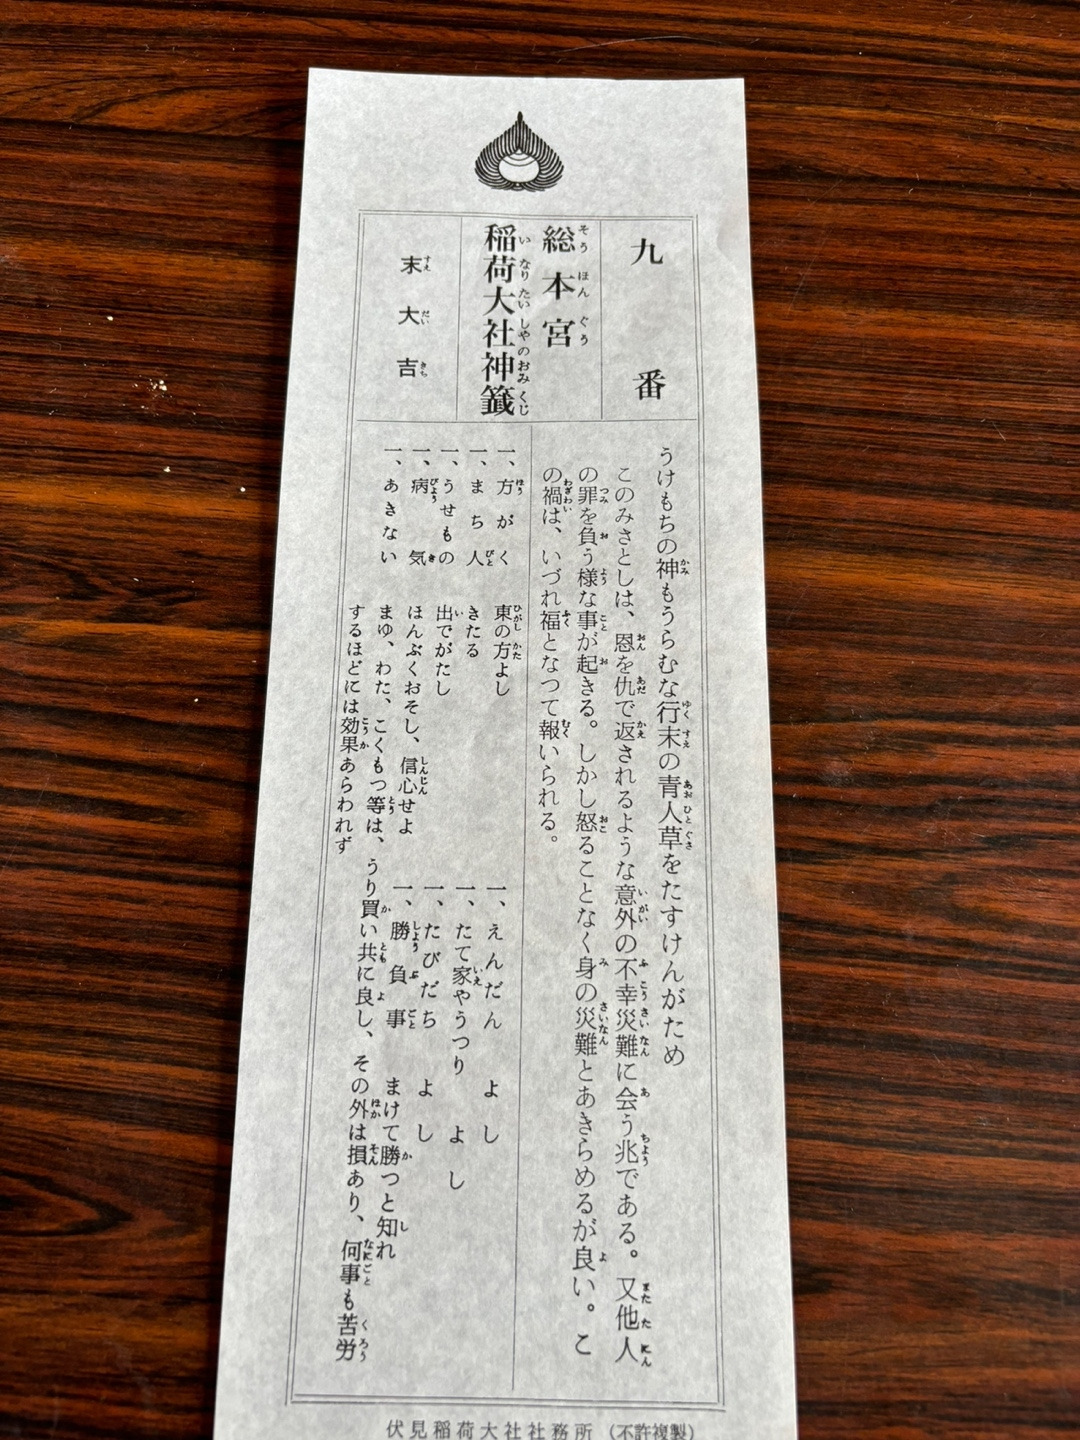 九番
総本宮
稲荷大社神籤
末大吉
うけもちの神もうらむな行末の青人草をたすけんがため
このみさとしは、恩を仇で返されるような意外の不幸災難に会う兆である。又他人
の罪を負う様な事が起きる。しかし怒ることなく身の災難とあきらめるが良い。こ
の禍は、いづれ福となつて報いられる。
一、方がく 東の方よし
一、まち人 きたる
一、うせもの 出でがたし
一、病気 ほんぷくおそし、信心せよ
一、あきない まゆ、わた、こくもつ等は、うり買い共に良し、その外は損あり、何事も苦労
するほどには効果あらわれず
一、えんだん よし
一、たて家やうつり よし
一、たびだち よし
一、勝負事 まけて勝つと知れ
伏見稲荷大社社務所 (不許複製)